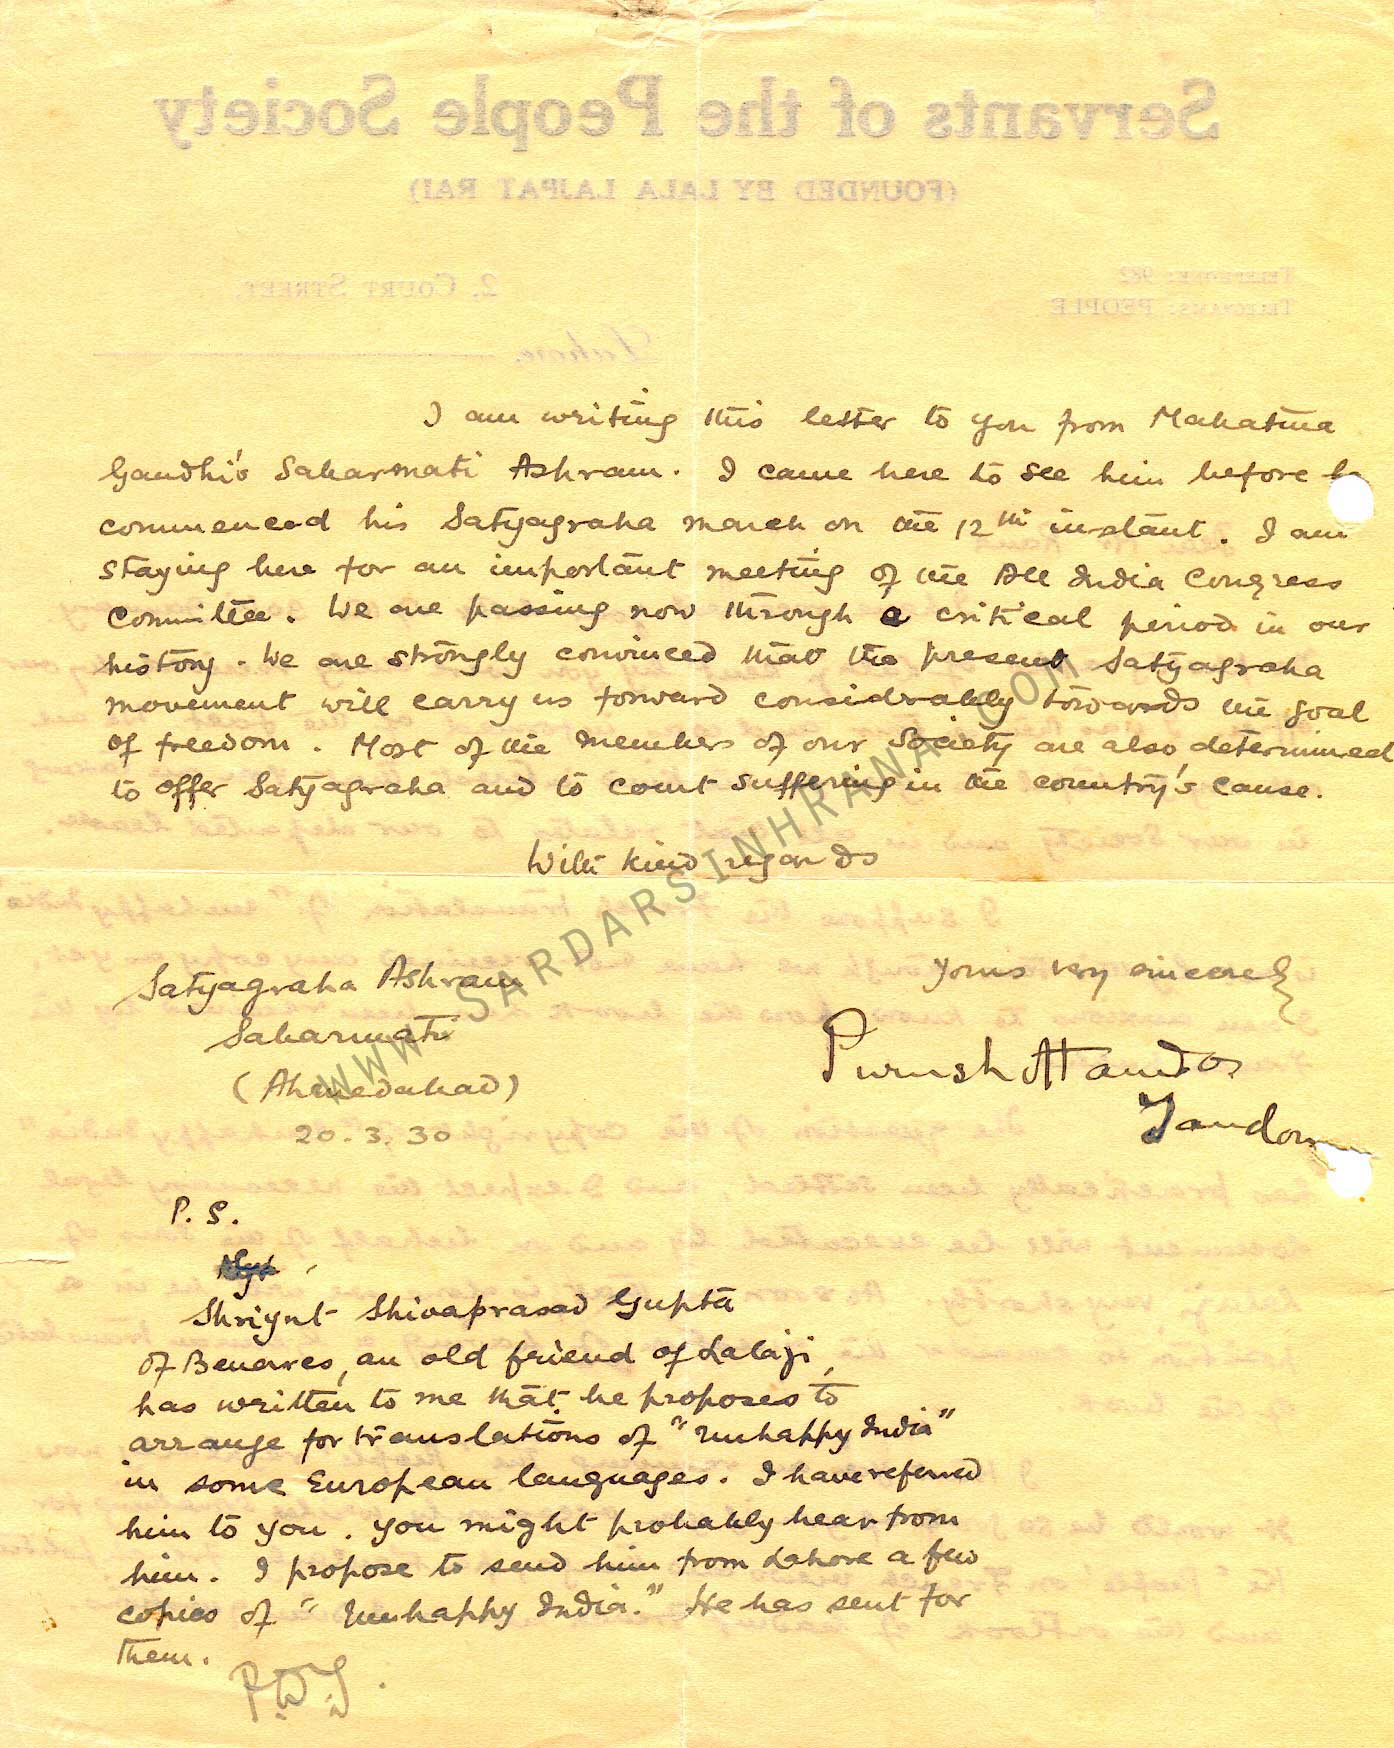 Servants of the People Society
(FOUNDED BY LALA LAJPAT RAI)
TELEPHONE: 982
TELEGRAMS: PEOPLE
2, COURT STREET,
Lahore,
I am writing this letter to you from Mahatma
Gandhi's Sabarmati Ashram. I came here to see him before
commenced his Satyagraha march on the 12th instant. I am
staying here for an important meeting of the All India Congress
Committee. We are passing now through a critical period in our
history. We are strongly convinced that the present Satyagraha
movement will carry us forward considrably towards the goal
of freedom. Most of the members of our Society are also determined
to offer Satyagraha and to court suffering in the country's cause.
With kind regards
Yours very sincerely
Purushottamdas
Tandon
Satyagraha Ashram
Sabarmati
(Ahmedabad)
20.3.30
P.S.
Shriyut Shivaprasad Gupta
of Benares, an old friend of Lalaji,
has written to me that he proposes to
arrange for translations of "Unhappy India"
in some European languages. I have referred
him to you. You might probably hear from
him. I propose to send him from Lahore a few
copies of "Unhappy India." He has sent for
them.
P.D.T.
WWW.SARDARSINHRANA.COM